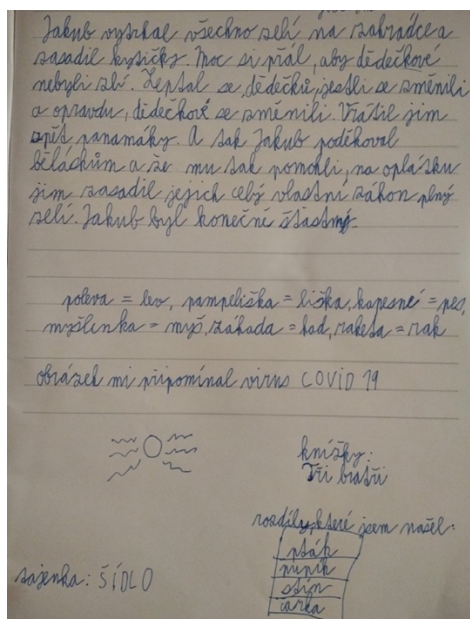 Jakub vytrhal všechno zelí na zahrádce a
zasadil kytičky. Moc si přál, aby dědečkové
nebyli zlí. Zeptal se, dědečků, jestli se změnili
a opravdu, dědečkové se změnili. Vrátil jim
zpět panamáky. A tak Jakub poděkoval
běláskům a že mu tak pomohli, na oplátku
jim zasadil jejich celý vlastní záhon plný
zelí. Jakub byl konečně šťastný.
poleva = lev, pampeliška = liška, kapesné = pes,
myšlenka = myš, záhada = had, raketa = rak
obrázek mi připomínal virus COVID 19
knížky:
Tři bratři
rozdíly, které jsem našel:
pták
puník
stín
čárka
tajenka: ŠÍDLO